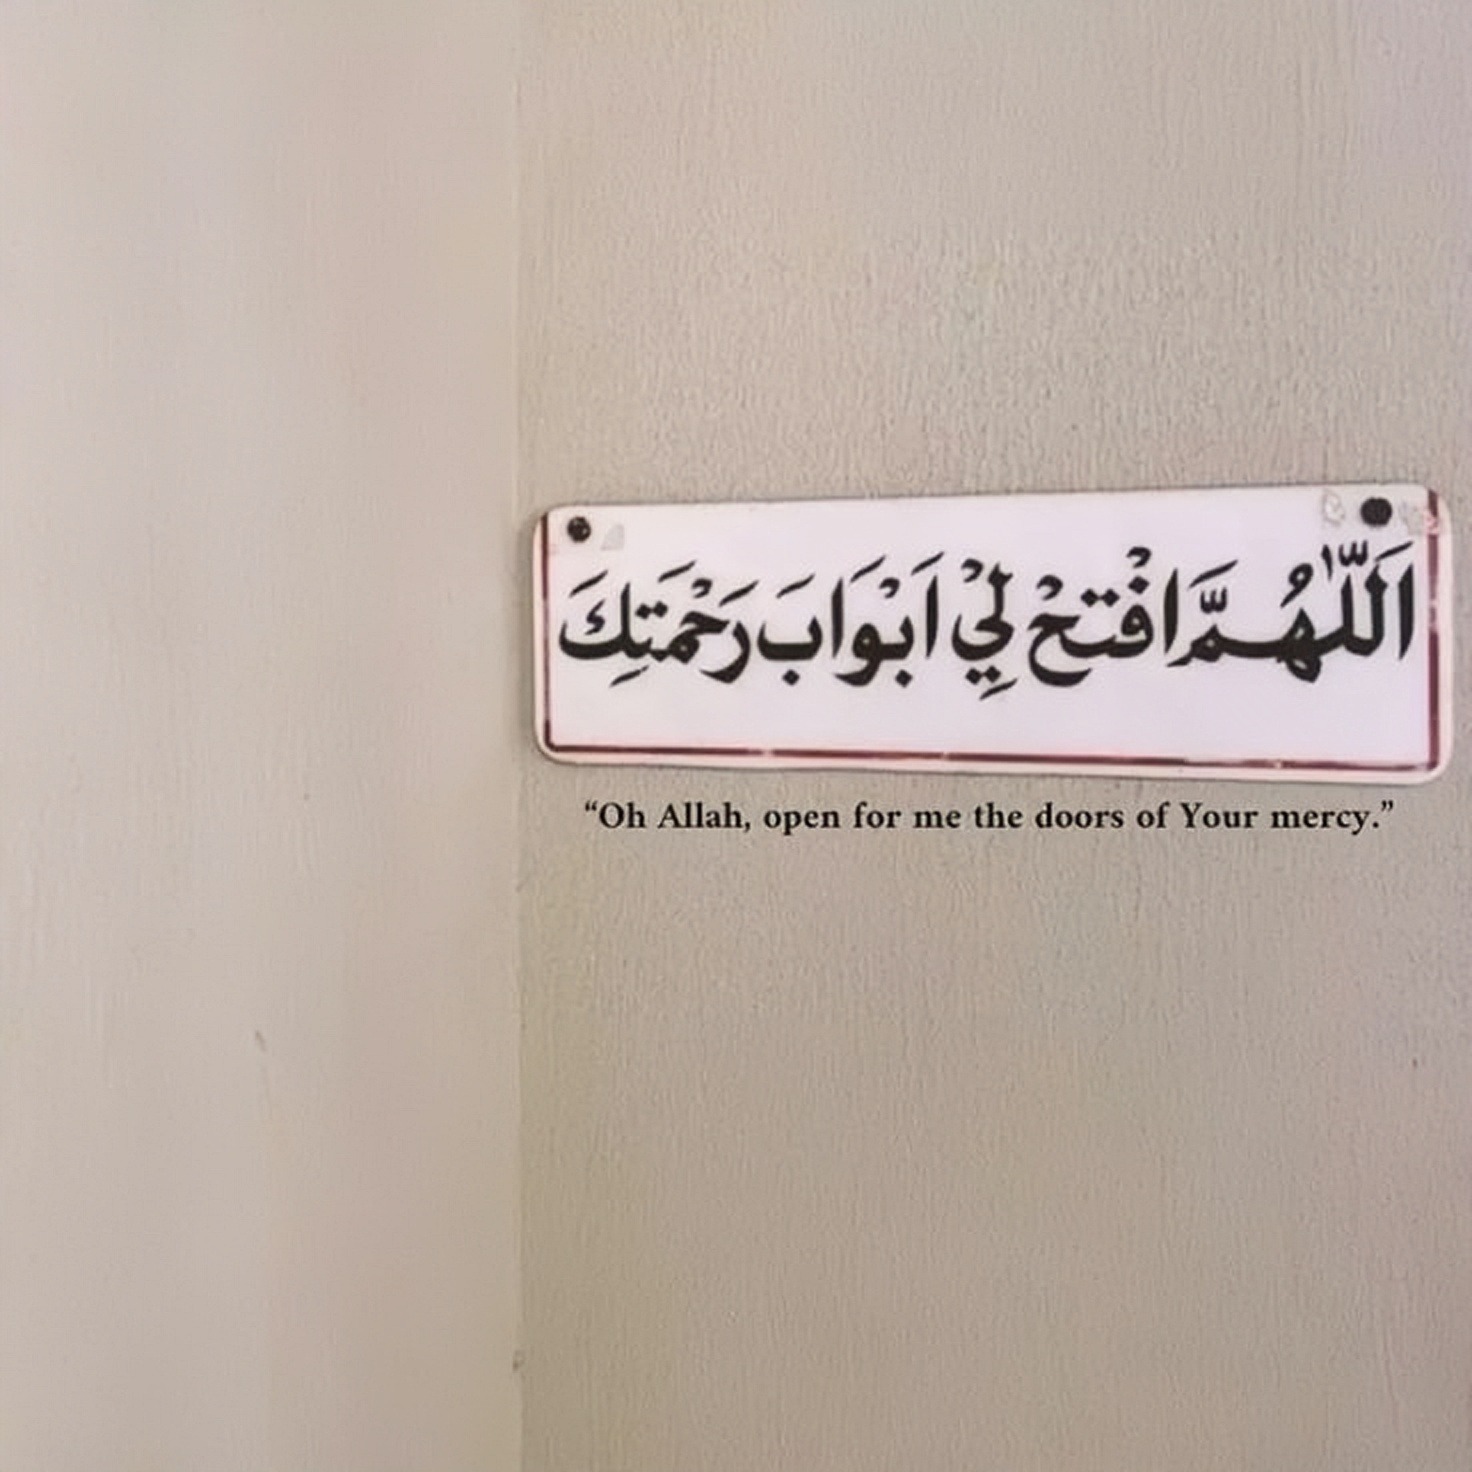 اَللّٰهُمَّ افْتَحْ لِيْ اَبْوَابَ رَحْمَتِكَ
“Oh Allah, open for me the doors of Your mercy.”